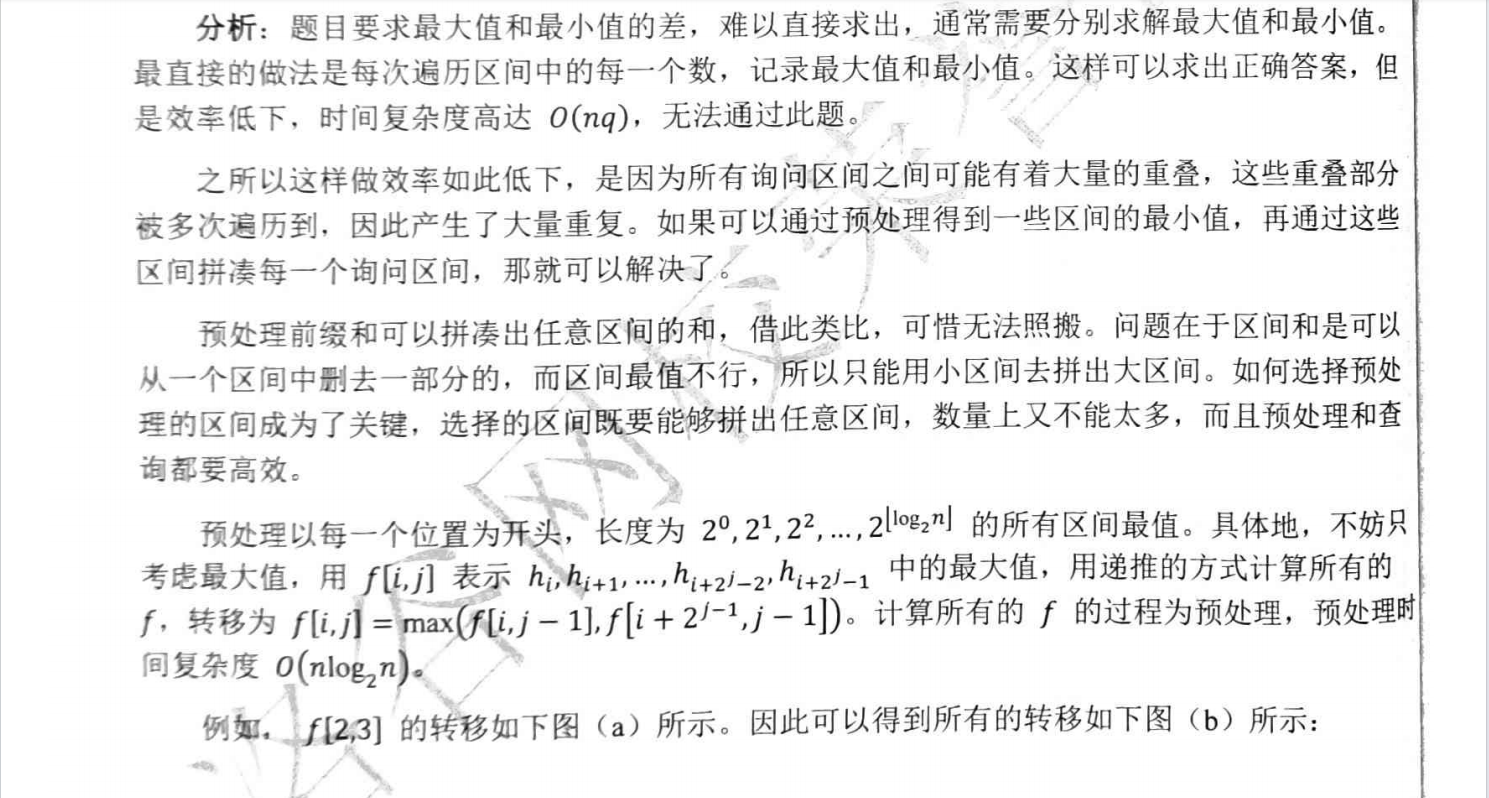 分析：题目要求最大值和最小值的差，难以直接求出，通常需要分别求解最大值和最小值。
最直接的做法是每次遍历区间中的每一个数，记录最大值和最小值。这样可以求出正确答案，但
是效率低下，时间复杂度高达 O(nq)，无法通过此题。
之所以这样做效率如此低下，是因为所有询问区间之间可能有着大量的重叠，这些重叠部分
被多次遍历到，因此产生了大量重复。如果可以通过预处理得到一些区间的最小值，再通过这些
区间拼凑每一个询问区间，那就可以解决了。
预处理前缀和可以拼凑出任意区间的和，借此类比，可惜无法照搬。问题在于区间和是可以
从一个区间中删去一部分的，而区间最值不行，所以只能用小区间去拼出大区间。如何选择预处
理的区间成为了关键，选择的区间既要能够拼出任意区间，数量上又不能太多，而且预处理和查
询都要高效。
预处理以每一个位置为开头，长度为 2⁰, 2¹, 2², ..., 2^⌊log₂n⌋ 的所有区间最值。具体地，不妨只
考虑最大值，用 f[i,j] 表示 h_i, h_{i+1}, ..., h_{i+2^j−2}, h_{i+2^j−1} 中的最大值，用递推的方式计算所有的
f，转移为 f[i,j] = max(f[i,j − 1], f[i + 2^{j−1}, j − 1])。计算所有的 f 的过程为预处理，预处理时
间复杂度 O(nlog₂n)。
例如，f[2,3] 的转移如下图（a）所示。因此可以得到所有的转移如下图（b）所示：
洛谷网校荣誉